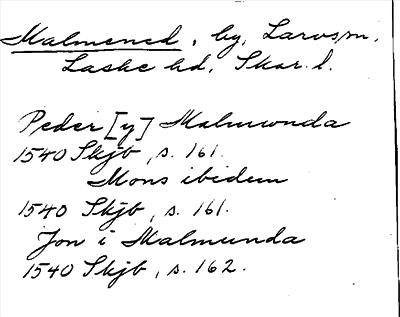 Malmened, by, Larvs sn,
Laske hd, Skar. l.
Peder [y] Malmunda
1540 Skjb, s. 161.
Mons ibidem
1540 Skjb, s. 161.
Jon i Malmunda
1540 Skjb, s. 162.